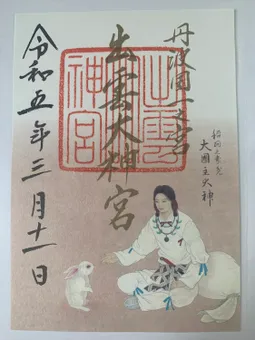 丹波國一之宮
出雲大神宮
出雲
神宮
令和五年三月十一日
大國主大神